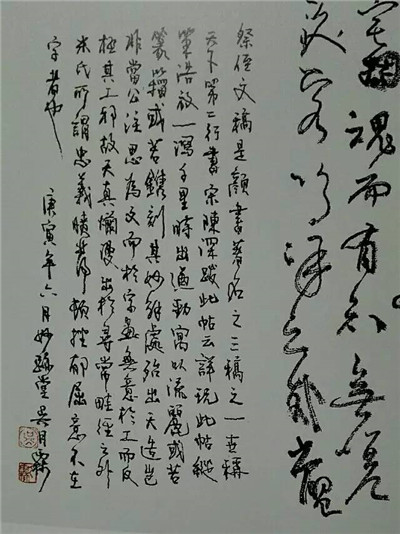 宅魂而有知無嗟
久客嗚呼哀哉尚饗
祭侄文稿是顏書著名之三稿之一世稱
天下第二行書宋陳深跋此帖云詳玩此帖縱
筆浩放一瀉千里時出遒勁寓以流麗或若
篆籀或若鐫刻其妙解處殆出天造豈
非當公注思為文而於字畫無意於工而反
極其工邪故天真爛漫出於尋常畦徑之外
米氏所謂忠義憤發頓挫郁屈意不在
字者也
庚寅年六月妙堂吳月霖